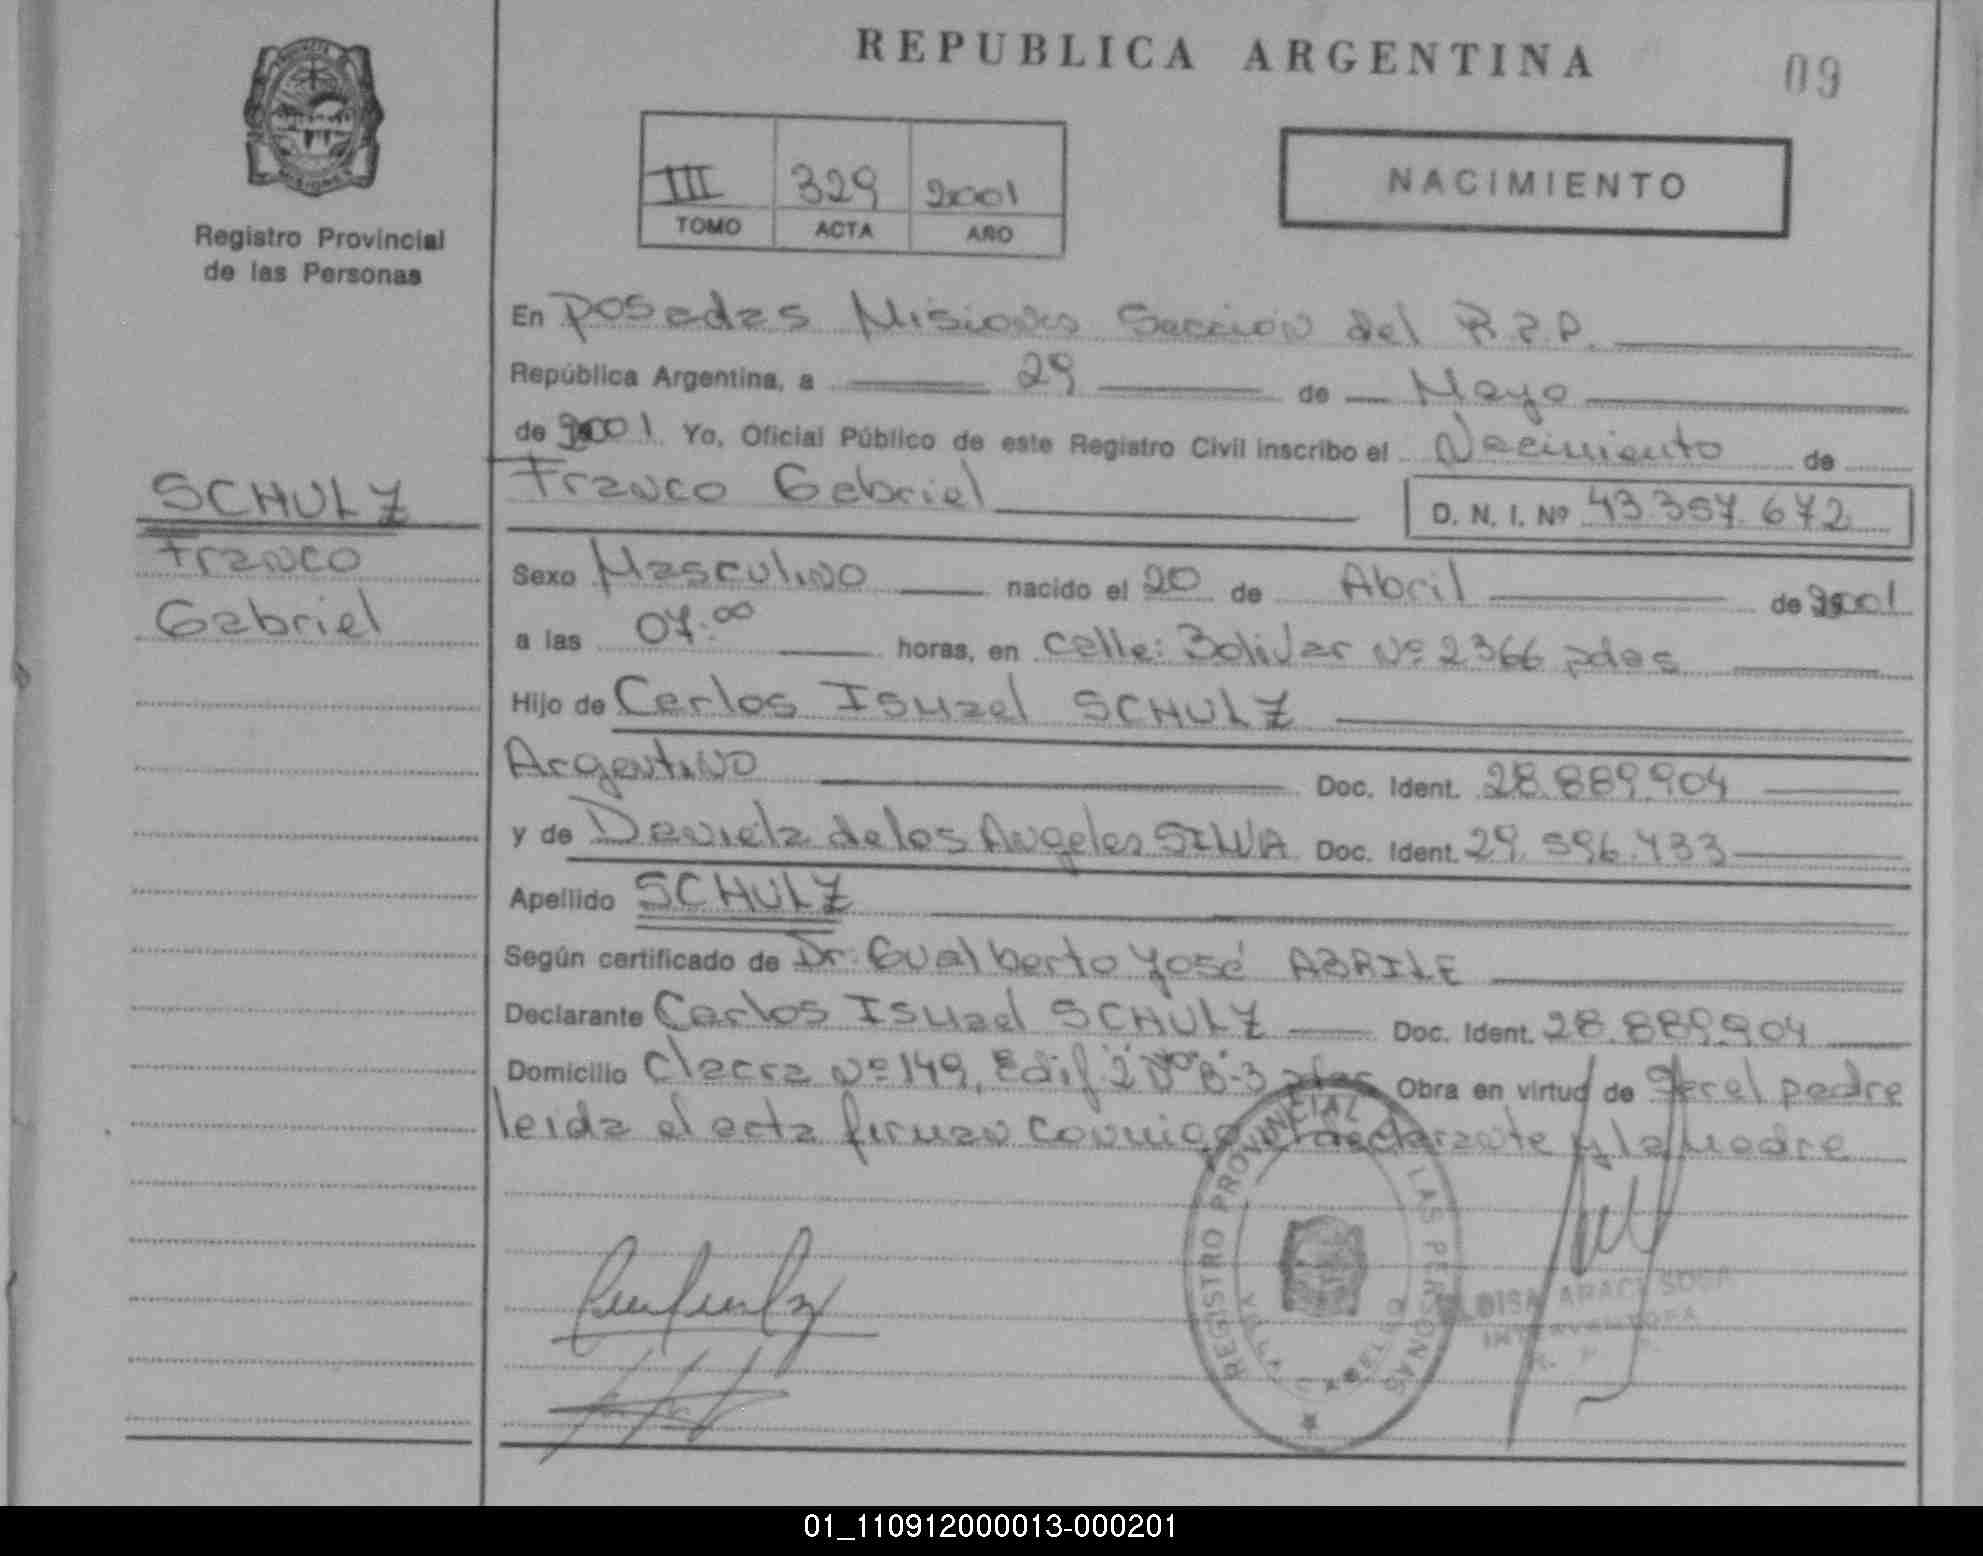 REPUBLICA ARGENTINA
09
III 329 2001
TOMO ACTA AÑO
NACIMIENTO
MISIONES
Registro Provincial
de las Personas
En Posadas Misiones Sección del R.P.P.
República Argentina, a 29 de Mayo
de 2001 Yo, Oficial Público de este Registro Civil inscribo el Nacimiento de
Franco Gabriel
D. N. I. Nº 43.357.672
SCHULZ
Franco
Gabriel
Sexo Masculino nacido el 20 de Abril de 2001
a las 07:00 horas, en calle: Bolivar Nº 2366 pdas
Hijo de Carlos Ismael SCHULZ
Argentino Doc. Ident. 28.889.904
y de Daniela de los Angeles SILVA Doc. Ident. 29.596.433
Apellido SCHULZ
Según certificado de Dr. Gualberto José ABRILE
Declarante Carlos Ismael SCHULZ Doc. Ident. 28.889.904
Domicilio Chacra Nº 149, Edif 2 B-3 pdas Obra en virtud de ser el padre
leida el acta firman conmigo el declarante y la madre
REGISTRO PROVINCIAL LAS PERSONAS
ARACI SOSA
INTERVENTORA
R. P. P.
01_110912000013-000201